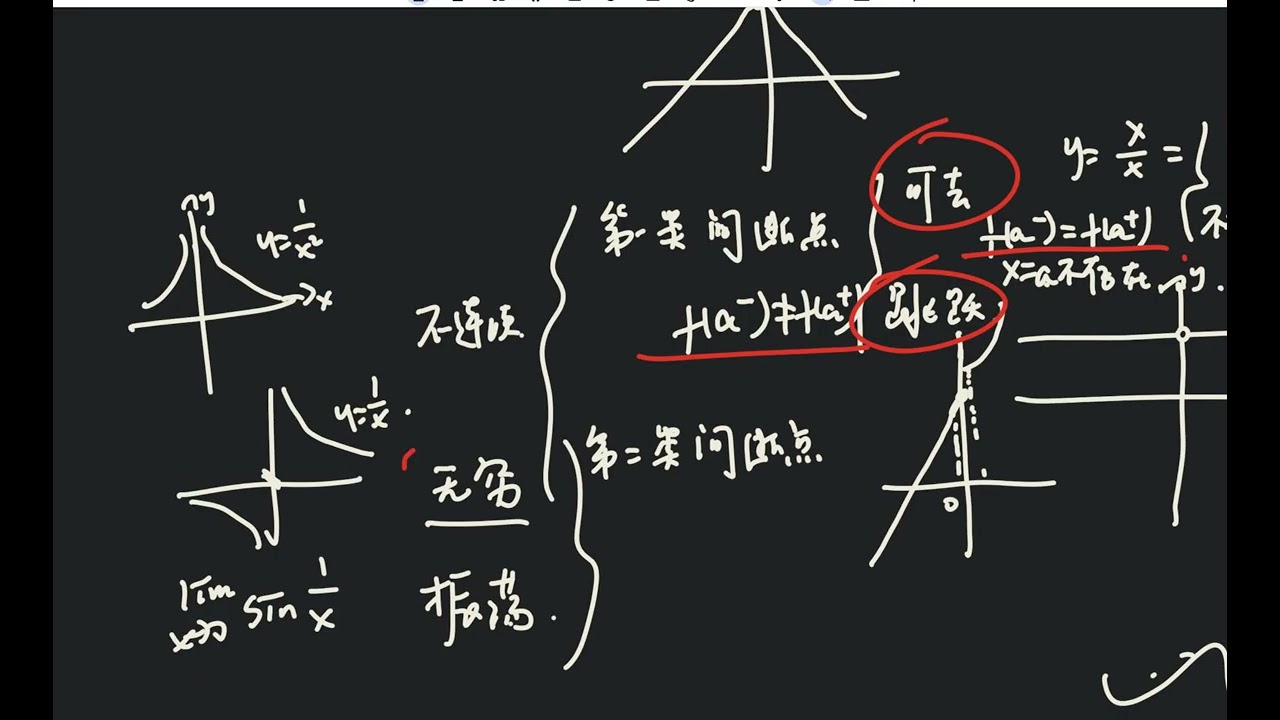 y = x/x = {
可去
第一类间断点
f(a⁻) = f(a⁺)
不
x=a不存在
y
y
y = 1/x²
x
不连续
f(a⁻) ≠ f(a⁺)
跳跃
y = 1/x
第二类间断点
无穷
0
lim x→0 sin 1/x
振荡